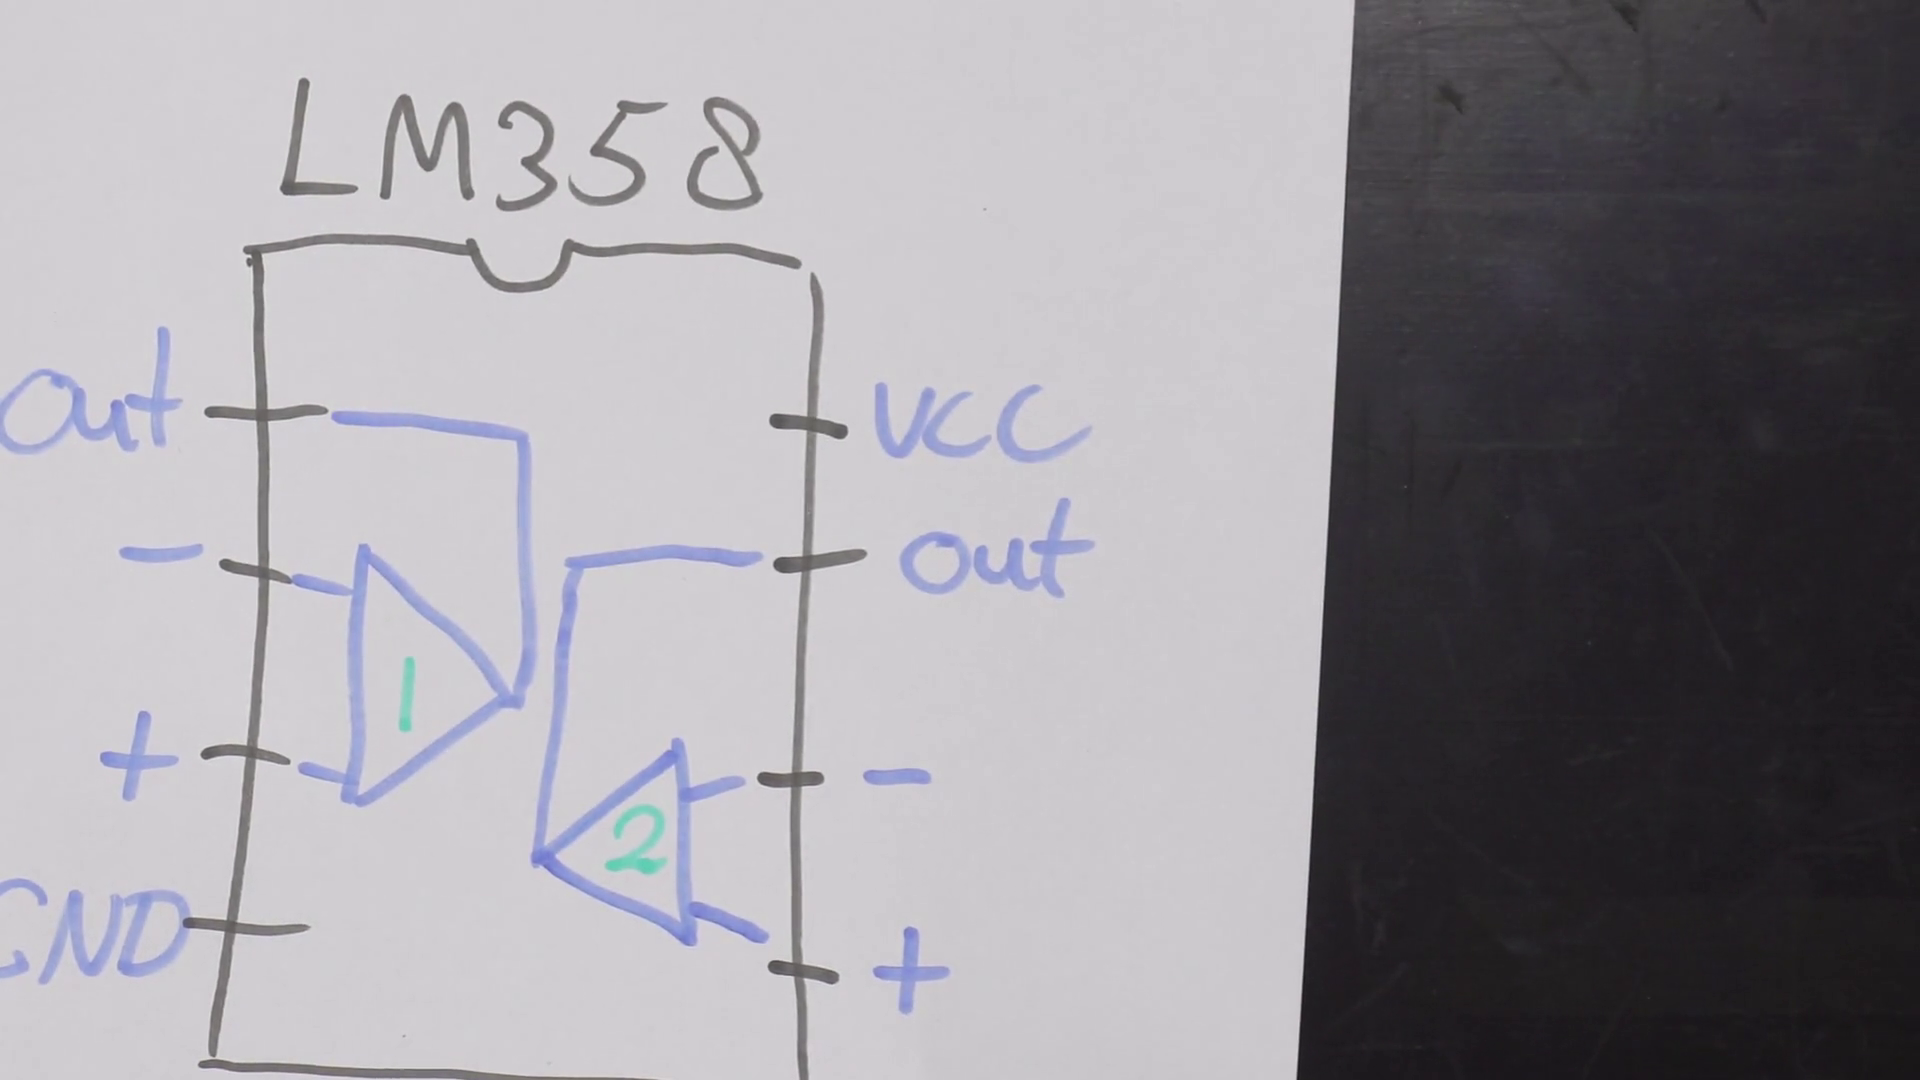 LM358
out VCC
- out
1
+ -
2
GND +